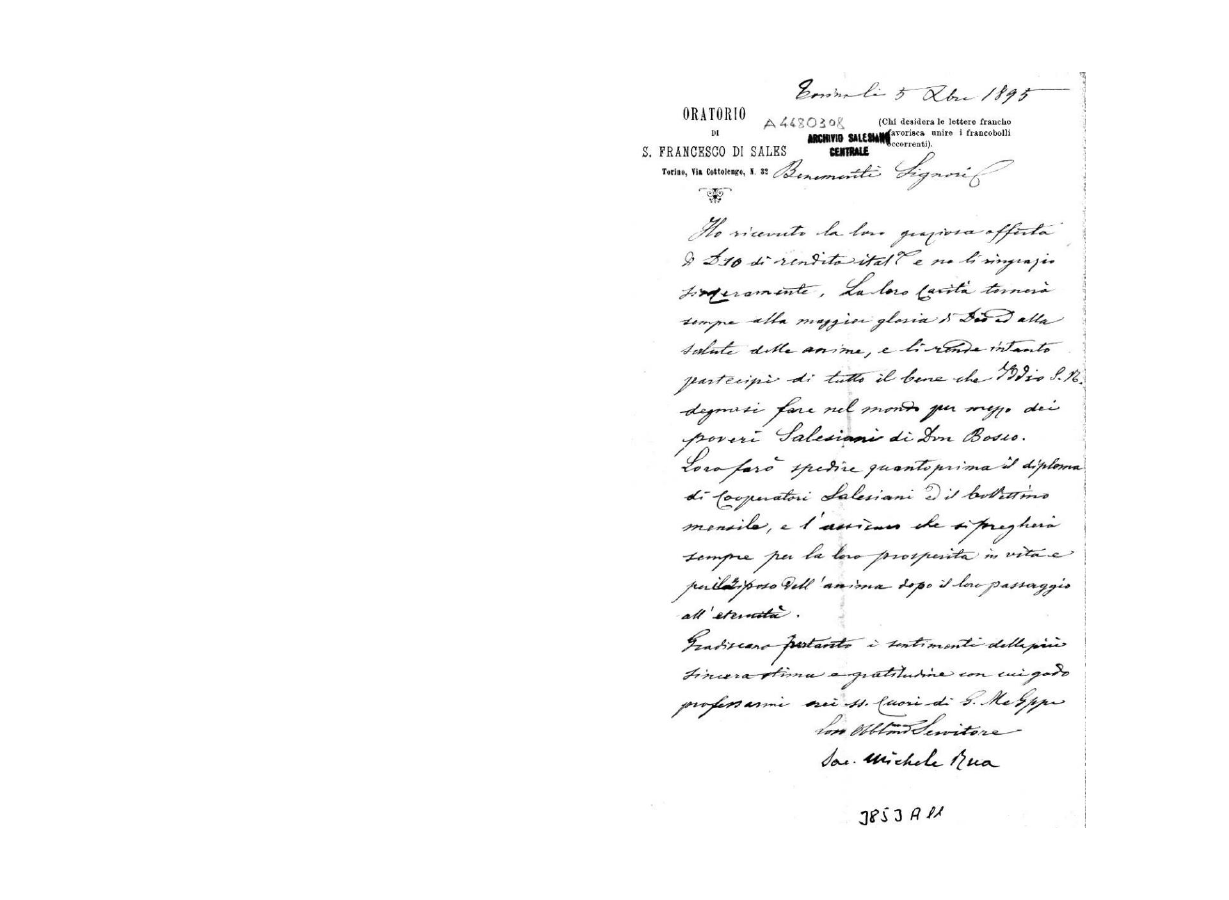 Torino li 5 Xbre 1895
ORATORIO
DI
S. FRANCESCO DI SALES
Torino, Via Cottolengo, N. 32
A4480308
ARCHIVIO SALESIANO
CENTRALE
(Chi desidera le lettere franche
favorisca unire i francobolli
occorrenti).
Benemeriti Signori
Ho ricevuto la loro graziosa offerta
di £10 di rendita ital. e ne li ringrazio
sinceramente. La loro carità tornerà
sempre alla maggior gloria di Dio ed alla
salute delle anime, e li rende intanto
partecipi di tutto il bene che Iddio S. N.
degnasi fare nel mondo per mezzo dei
poveri Salesiani di Don Bosco.
Loro farò spedire quanto prima il diploma
di Cooperatori Salesiani ed il bollettino
mensile, e l'assicuro che si pregherà
sempre per la loro prosperità in vita e
pel riposo dell'anima dopo il loro passaggio
all'eternità.
Gradiscano pertanto i sentimenti della più
sincera stima e gratitudine con cui godo
professarmi nei SS. Cuori di G. M e Gppe
Loro Obblmo Servitore
Sac. Michele Rua
3853 A 11